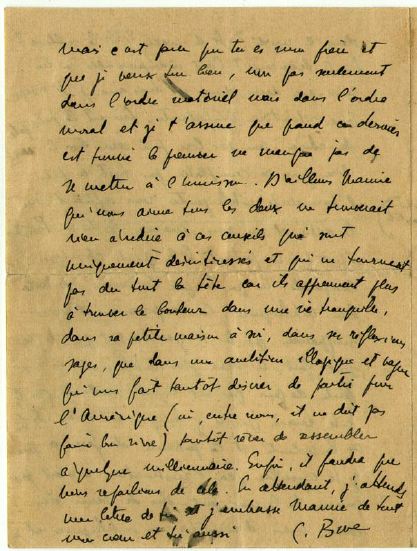 mais c'est parce que tu es mon frère et
que je veux ton bien, non pas seulement
dans l'ordre matériel mais dans l'ordre
moral et je t'assure que quand ce dernier
est trouvé le premier ne manque pas de
se mettre à l'unisson. D'ailleurs Mamie
qui nous aime tous les deux ne trouverait
rien à redire à ces conseils qui sont
uniquement désintéressés et qui ne tournent
pas du tout la tête car ils apprennent plus
à trouver le bonheur dans une vie tranquille,
dans sa petite maison à soi, dans ses réflexions
sages, que dans une ambition illogique et vague
qui vous fait tantôt désirer de partir pour
l'Amérique (ici, entre nous, il ne doit pas
faire bon vivre) tantôt rêver de ressembler
à quelque millionnaire. Enfin, il faudra que
nous reparlions de cela. En attendant, j'attends
une lettre de toi et j'embrasse Mamie de tout
mon cœur et toi aussi